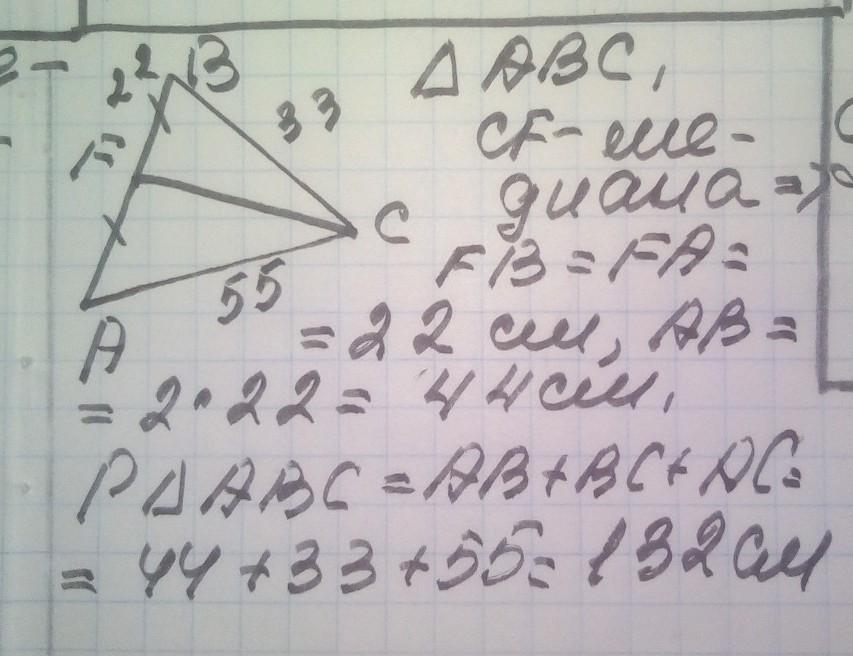 22 B
F
33
C
55
A
△ ABC,
CF - ме-
диана =>
FB = FA =
= 22 см, AB =
= 2 · 22 = 44 см,
P△ABC = AB + BC + AC =
= 44 + 33 + 55 = 132 см